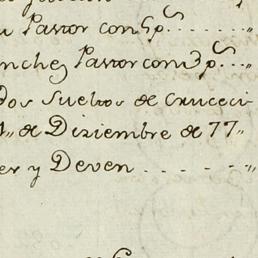 u Pastor con 5 p.s . . . . . . . "
nchez Pastor com 3 p.s . . . "
dos Sueltos de Cruceci
" de Diziembre de 77"
er y Deven . . . . . . "